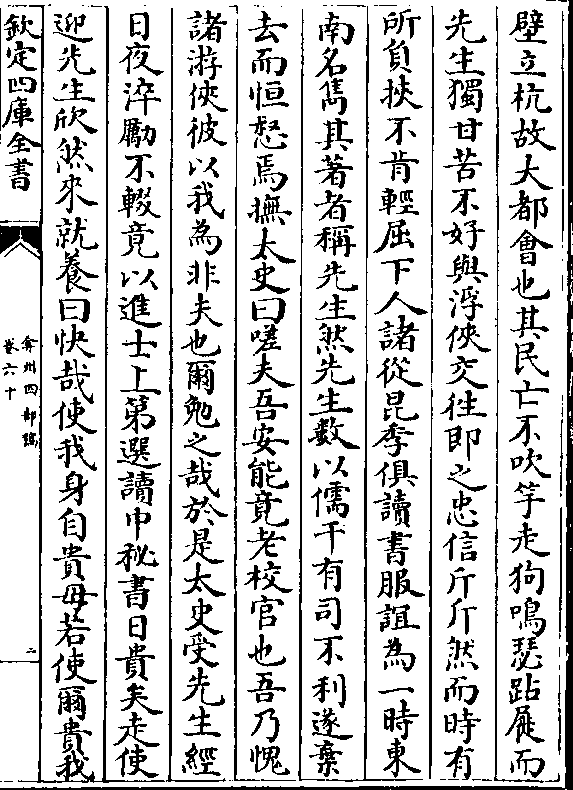 壁立杭故大都會也其民亡不吹竽走狗鳴瑟跕屣而
先生獨甘苦不好與浮俠交徃即之忠信斤斤然而時有
所負挾不肯輕屈下人諸從昆季俱讀書服誼為一時東
南名雋其著者稱先生然先生數以儒干有司不利遂棄
去而恒愁焉撫太史曰嗟夫吾安能竟老校官也吾乃愧
諸游俠彼以我為非夫也爾勉之哉於是太史受先生經
日夜淬勵不輟竟以進士上第選讀中秘書日貴矣走使
迎先生欣然來就養曰快哉使我身自貴毋若使爾貴我
欽定四庫全書
弇州四部稿
卷六十
二